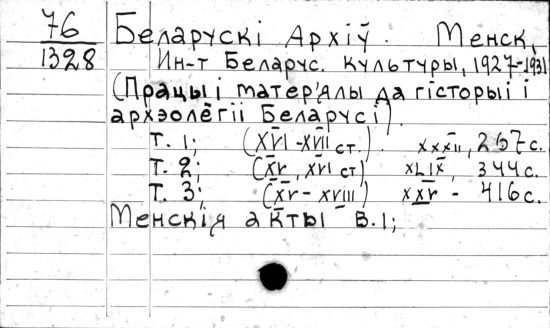 76 Беларускі Архіў. Менск,
1328 Ин-т Беларус. Культуры, 1927-1931
(Працы і матер'ялы да гісторыі і
архэолёгіі Беларусі).
Т. 1; (XVI-XVII ст.). XXXII, 267 с.
Т. 2; (XV, XVI ст) XLIX, 344 с.
Т. 3; (XV-XVIII) XXV - 416 с.
Менскія акты В. 1;